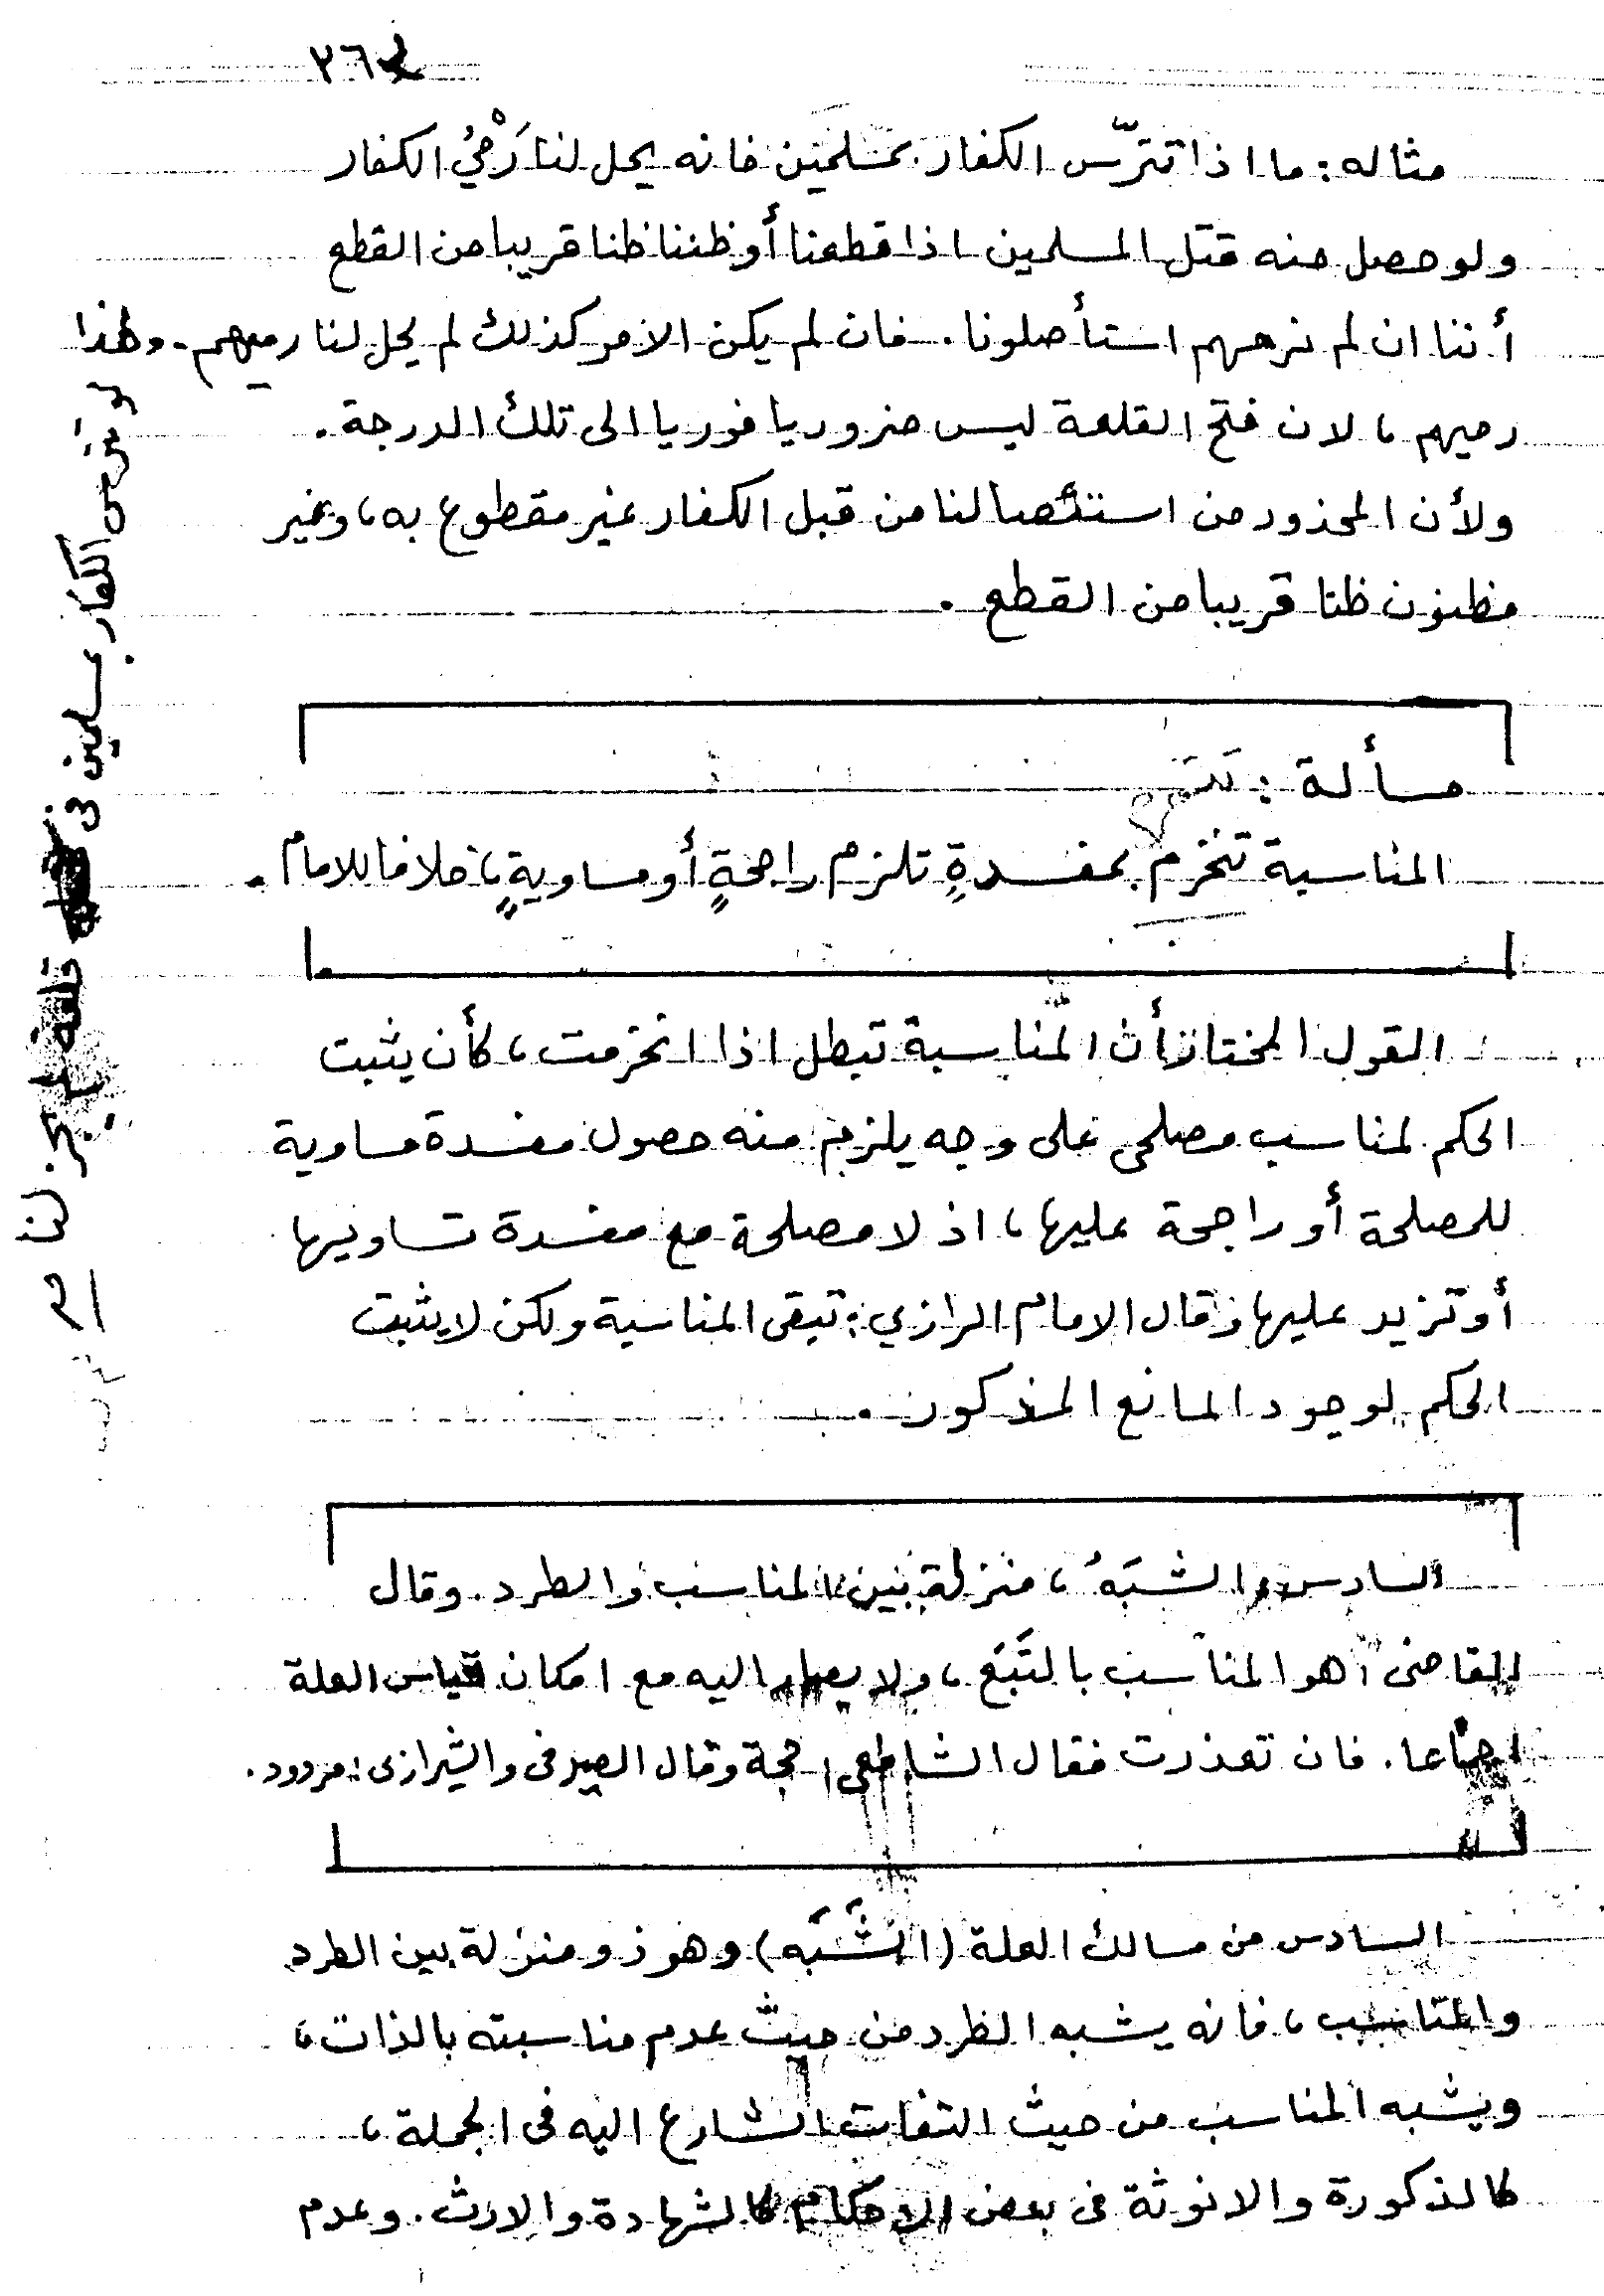 مثاله: ما اذا تترّس الكفار بمسلمين فانه يحل لنا رَمْيُ الكفار
ولو حصل منه قتل المسلمين اذا قطعنا أو ظننا ظنا قريبا من القطع
أننا ان لم نرمهم استأصلونا. فان لم يكن الامر كذلك لم يحل لنا رميهم. ولهذا
لو تترس الكفار بمسلمين فى قلعة لم يجز لنا
رميهم، لان فتح القلعة ليس ضروريا فوريا الى تلك الدرجة.
ولأن المحذور من استئصالنا من قبل الكفار غير مقطوع به، وغير
مظنون ظنا قريبا من القطع.
مسألة:
المناسبة تنخرم بمفسدةِ تلزم راجحةٍ أو مساويةٍ، خلافا للامام.
القول المختار أن المناسبة تبطل اذا انخرمت، كأن يثبت
الحكم لمناسب مصلحى على وجه يلزم منه حصول مفسدة مساوية
للمصلحة أو راجحة عليها، اذ لا مصلحة مع مفسدة تساويها
أو تزيد عليها وقال الامام الرازي: تبقى المناسبة ولكن لا يثبت
الحكم لوجود المانع المذكور.
السادس الشبَهُ، منزلة بين المناسب والطرد. وقال
القاضى هو المناسب بالتَبَع، ولا يصار اليه مع امكان قياس العلة
اجماعا. فان تعذرت فقال الشافعى حجة وقال الصيرفى والشيرازى: مردود.
السادس من مسالك العلة (الشَّبَه) وهو ذو منزلة بين الطرد
والمناسب، فانه يشبه الطرد من حيث عدم مناسبته بالذات،
ويشبه المناسب من حيث التفات الشارع اليه فى الجملة،
كالذكورة والانوثة فى بعض الاحكام كالشهادة والارث. وعدم